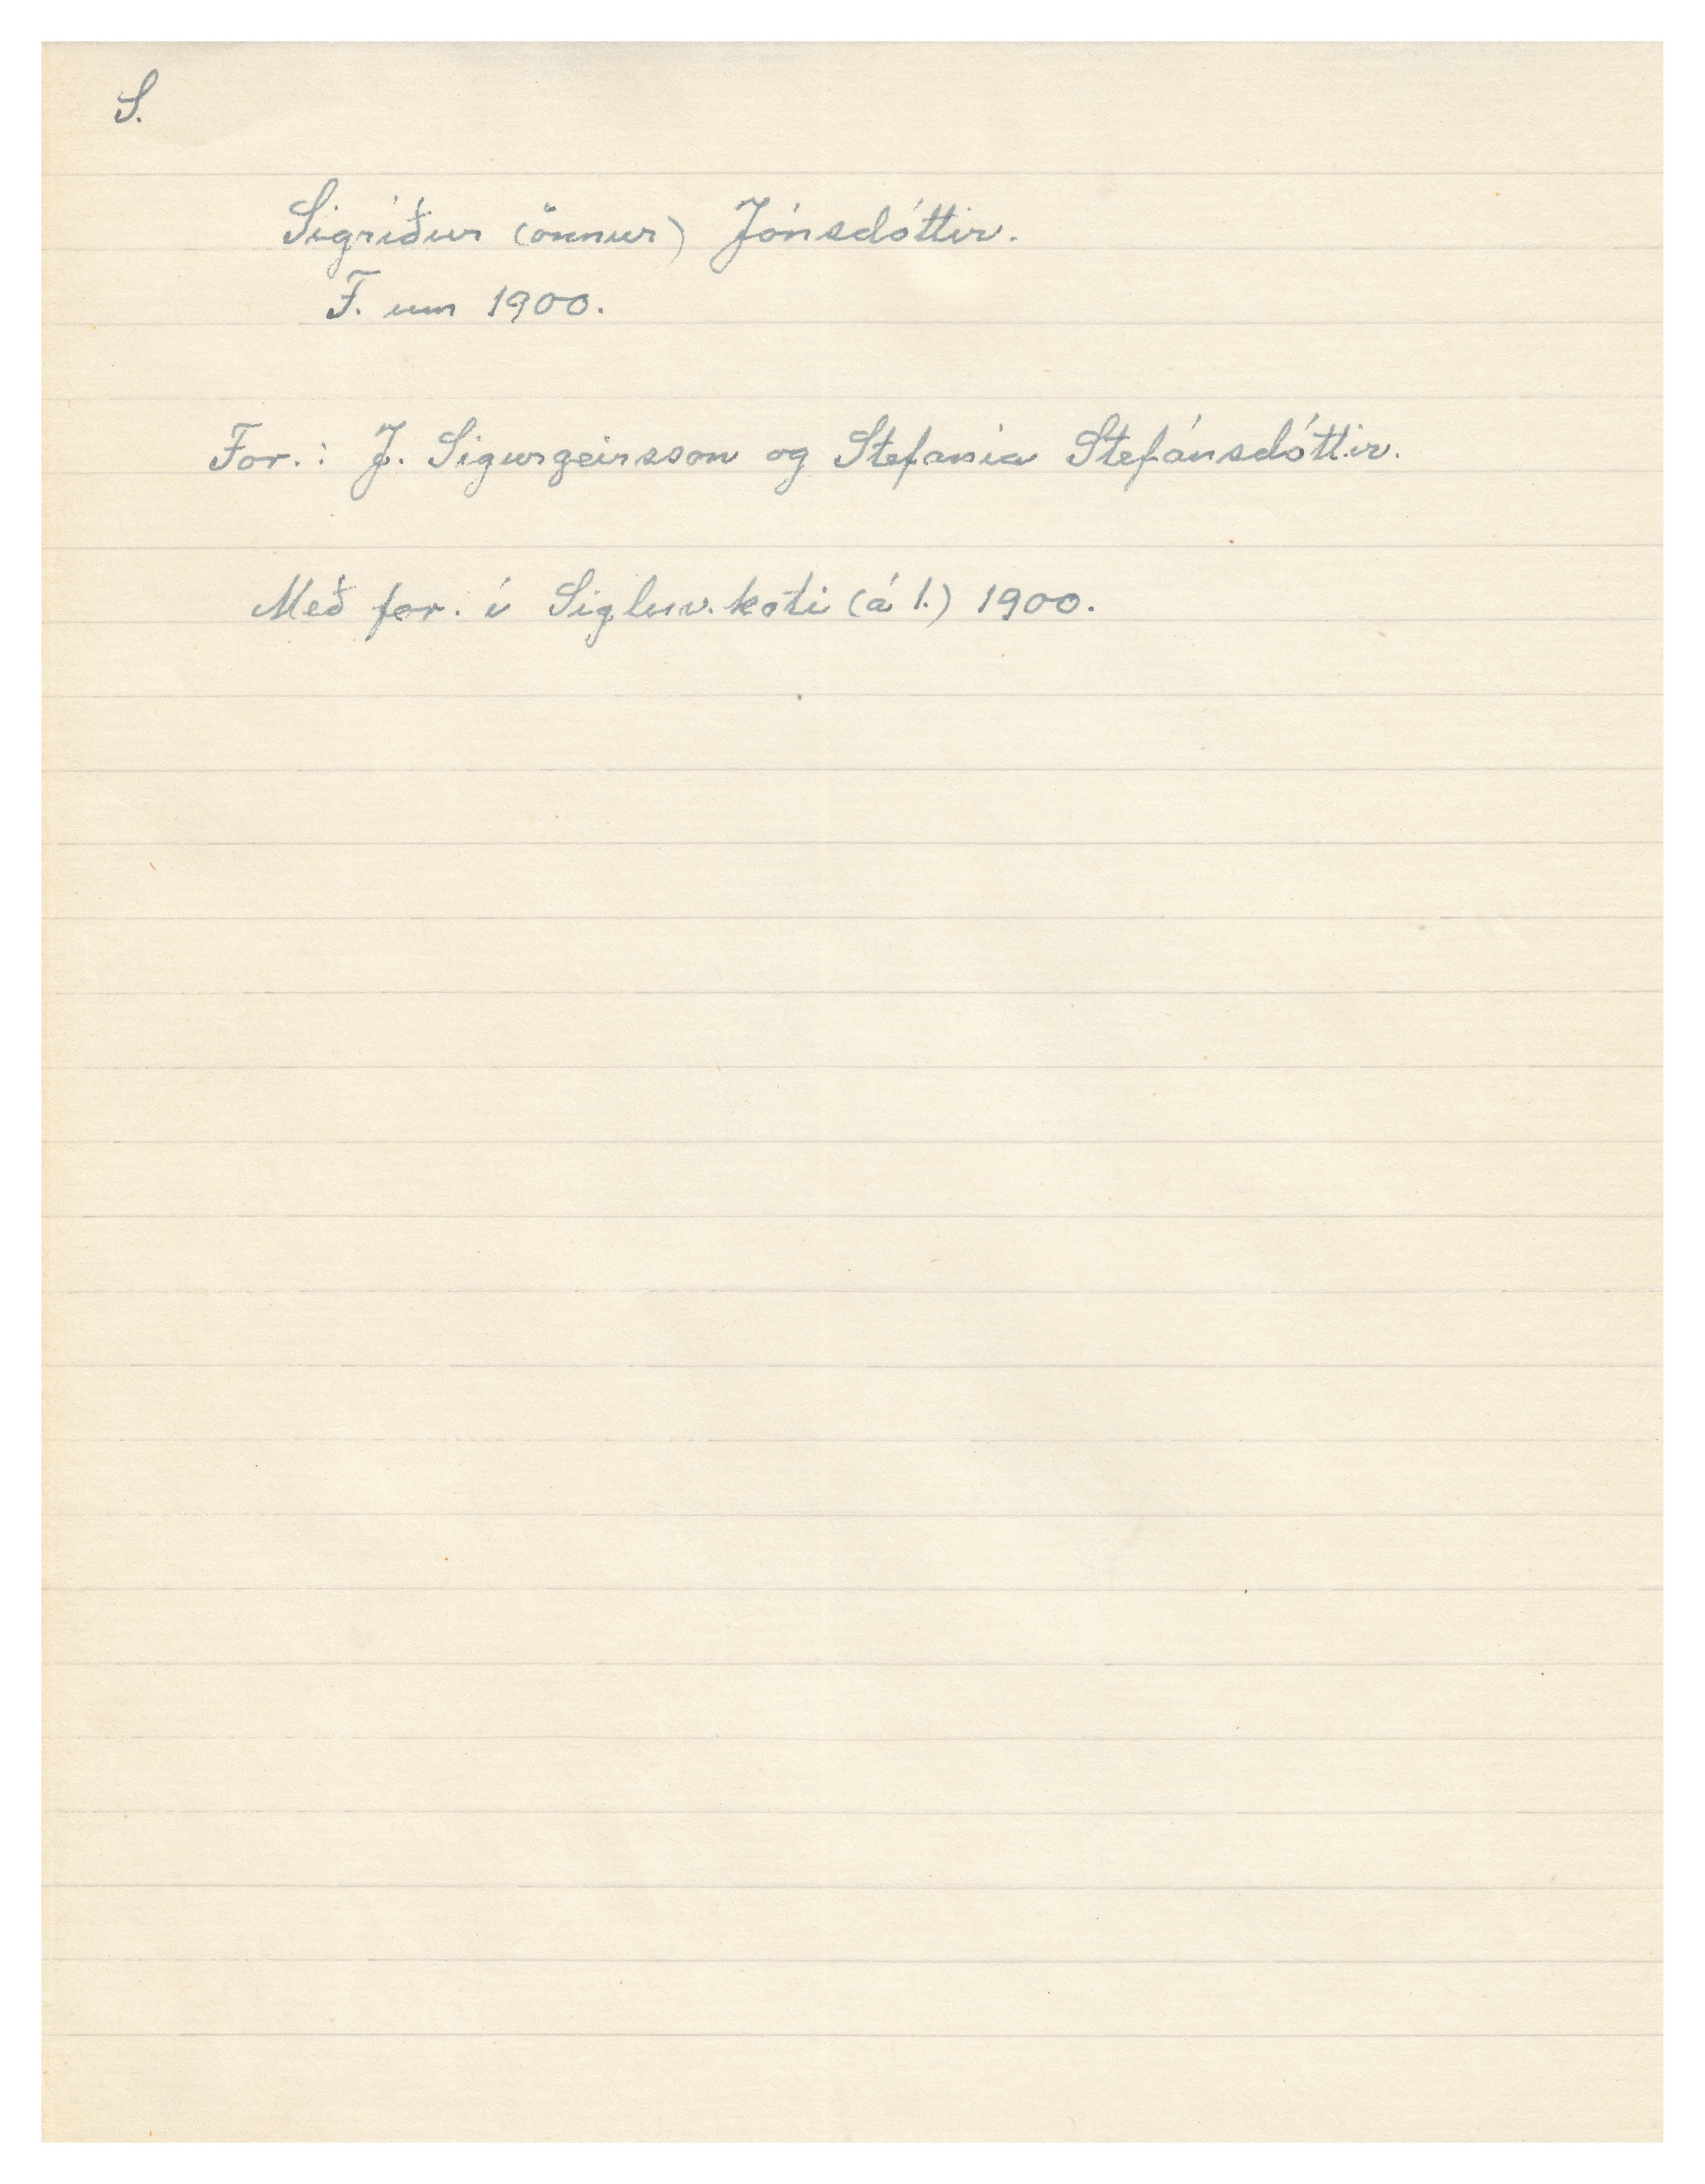 S.
Sigríður (önnur) Jónsdóttir.
F. um 1900.
For.: J. Sigurgeirsson og Stefania Stefánsdóttir.
Með for. íИгluv.koti (á 1.) 1900.